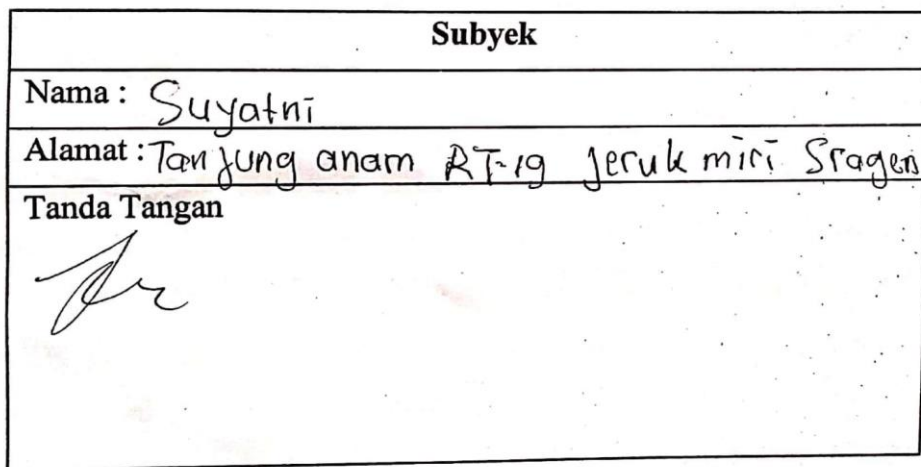 Subyek
Nama : Suyatni
Alamat : Tanjung anam RT-19 Jeruk miri Sragen
Tanda Tangan